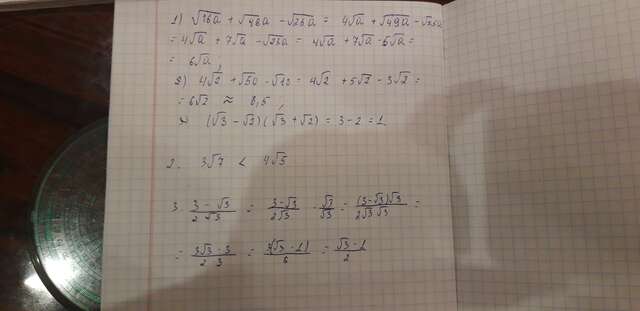 1) √16a + √49a - √25a = 4√a + √49a - √25a
= 4√a + 7√a - √25a = 4√a + 7√a - 5√a =
= 6√a ,
2) 4√2 + √50 - √18 = 4√2 + 5√2 - 3√2 =
= 6√2 ≈ 8,5 ,
(√3 - √2)(√3 + √2) = 3 - 2 = 1.
2. 3√7 < 4√5
3. (3 - √3)/(2√3) = (3-√3)/(2√3) · √3/√3 = ((3-√3)√3)/(2√3√3) =
= (3√3 - 3)/(2·3) = (3(√3 - 1))/6 = (√3 - 1)/2